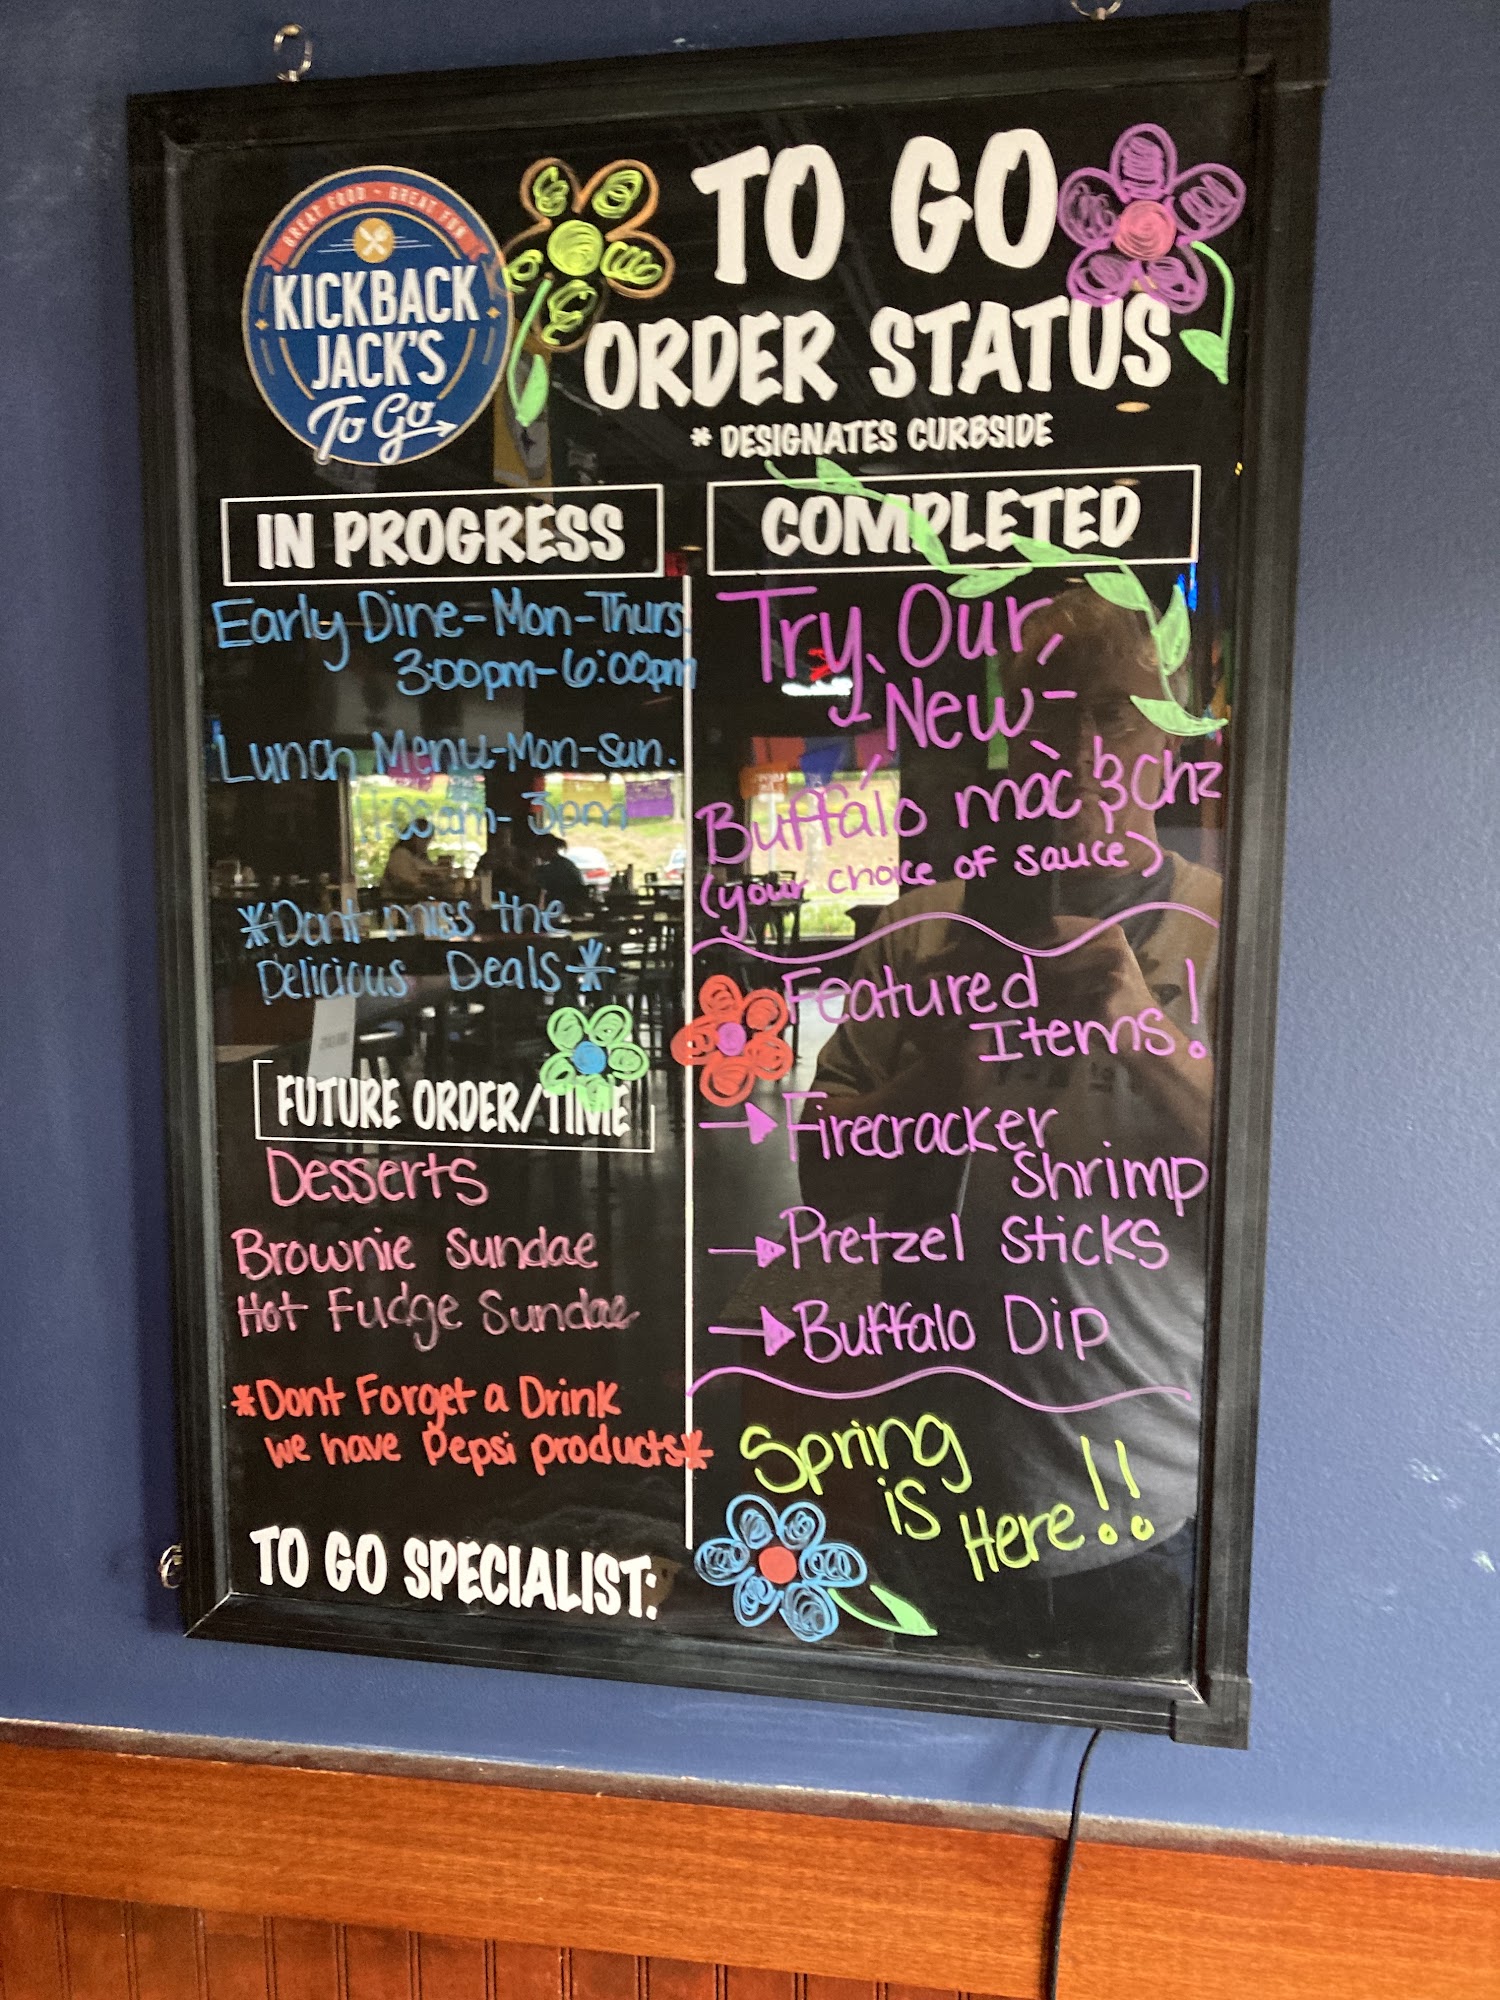 GREAT FOOD - GREAT FUN
KICKBACK
JACK'S
To Go
TO GO
ORDER STATUS
* DESIGNATES CURBSIDE
IN PROGRESS
Early Dine-Mon-Thurs.
3:00pm-6:00pm
Lunch Menu-Mon-Sun.
11:00am-3pm
*Dont miss the
Delicious Deals*
FUTURE ORDER/TIME
Desserts
Brownie Sundae
Hot Fudge Sundae
*Dont Forget a Drink
we have Pepsi products*
TO GO SPECIALIST:
COMPLETED
Try Our
New
Buffalo mac & Chz
(your choice of sauce)
Featured
Items!
→ Firecracker
Shrimp
→ Pretzel Sticks
→ Buffalo Dip
Spring
is
Here!!